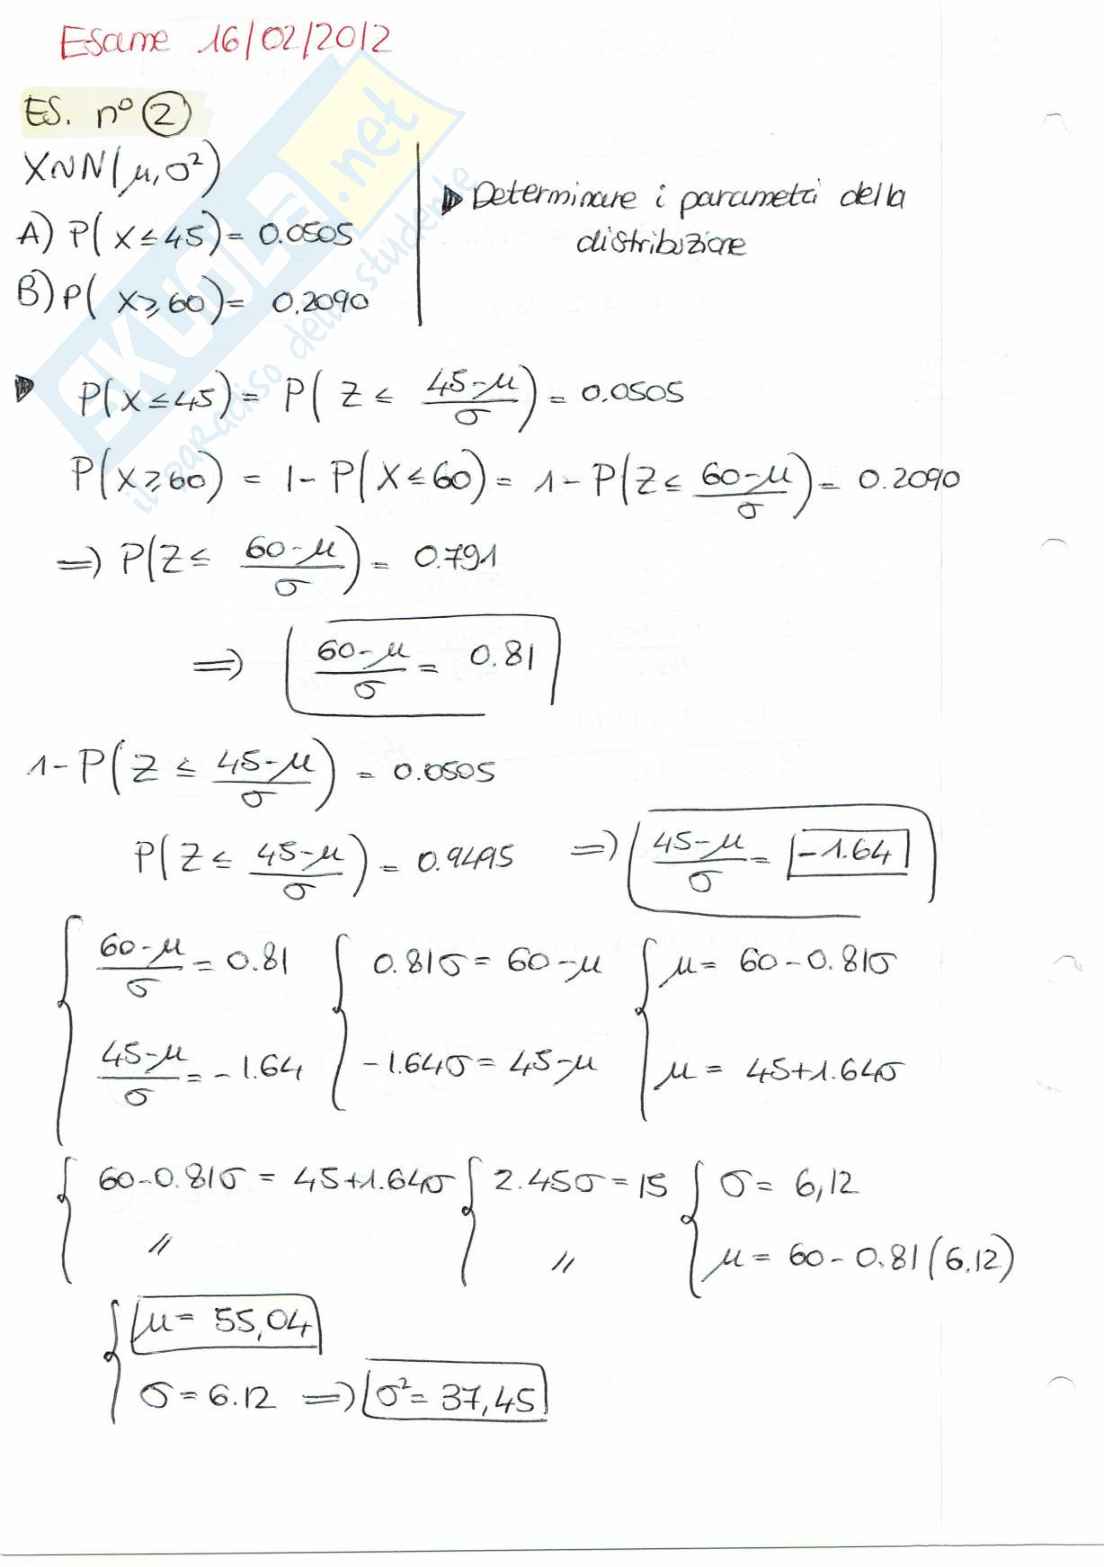 Esame 16/02/2012
ES. n° 2
X~N(μ,σ²)
A) P(X≤45)= 0.0505
B) P(X≥60)= 0.2090
Determinare i parametri della
distribuzione
P(X≤45)= P(Z ≤ (45-μ)/σ)= 0.0505
P(X≥60) = 1-P(X≤60)= 1-P(Z≤ (60-μ)/σ)= 0.2090
=> P(Z≤ (60-μ)/σ)= 0.791
=> (60-μ)/σ = 0.81
1-P(Z ≤ (45-μ)/σ) = 0.0505
P(Z≤ (45-μ)/σ)= 0.9495 => (45-μ)/σ = -1.64
{ (60-μ)/σ = 0.81 { 0.81σ = 60-μ { μ= 60-0.81σ
(45-μ)/σ = -1.64 -1.64σ = 45-μ μ = 45+1.64σ
{ 60-0.81σ = 45+1.64σ { 2.45σ=15 { σ= 6,12
// // μ= 60-0.81(6.12)
{ μ= 55,04
σ=6.12 => σ²= 37,45
SKUOLA.net
il paradiso dello studente